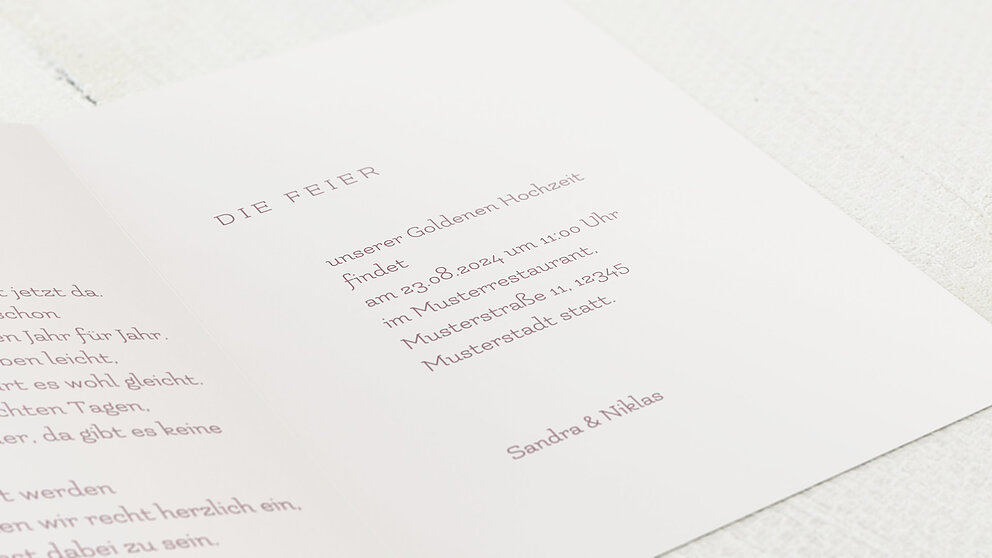 jetzt da.
schon
Jahr für Jahr.
leicht,
es wohl gleicht.
Tagen,
da gibt es keine
werden
wir recht herzlich ein,
dabei zu sein.
DIE FEIER
unserer Goldenen Hochzeit
findet
am 23.08.2024 um 11:00 Uhr
im Musterrestaurant,
Musterstraße 11, 12345
Musterstadt statt.
Sandra & Niklas